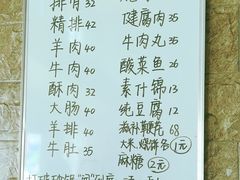 排骨 32
精排 42
羊肉 40
牛肉 40
酥肉 32
大肠 40
羊排 40
牛肚 35
健腐肉 35
牛肉丸 35
酸菜鱼 26
素什锦 13
纯豆腐 12
滋补鞭 68
大米 烧饼各 1元
麻糖 2元
打破砂锅"问"到底